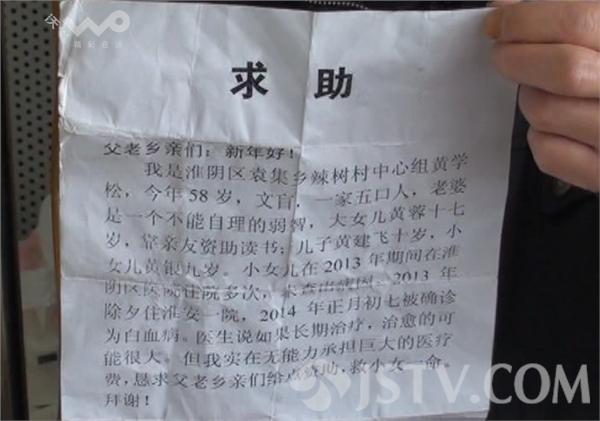 求 助
父老乡亲们：新年好！
我是淮阴区袁集乡辣树村中心组黄学
松，今年58岁，文盲，一家五口人，老婆
是一个不能自理的弱智，大女儿黄蓉十七
岁，靠亲友资助读书；儿子黄建飞十岁，小
女儿黄银九岁。小女儿在2013年期间在淮
阴区医院住院多次，未查出病因。2013年
除夕住淮安一院，2014年正月初七被确诊
为白血病。医生说如果长期治疗，治愈的可
能很大。但我实在无能力承担巨大的医疗
费，恳求父老乡亲们给点资助，救小女一命。
拜谢！
JSTV.COM